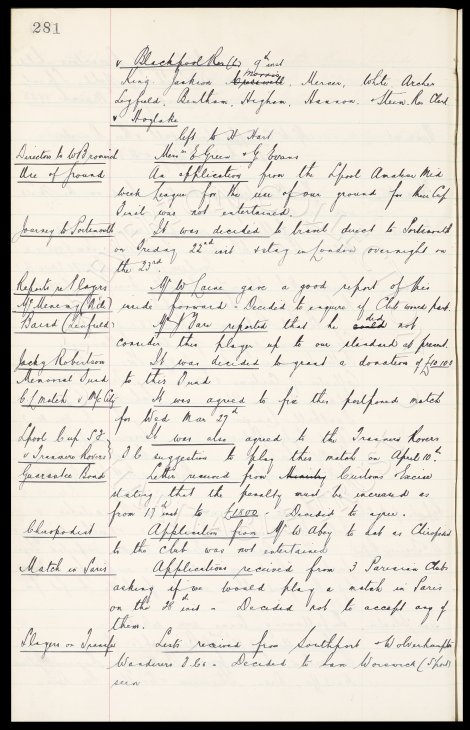 281
v Blackpool Res (h) 9th inst
King, Jackson, Morris, Mercer, White, Archer
Leyfield, Bentham, Higham, Hannon, & Stein. Res Clark
v Hoylake
left to H. Hart
Directors to W Bromwich Messrs E Green & G Evans
Use of ground An application from the Lpool Amateur Mid
week League for the use of our ground for their Cup
Final was not entertained.
Journey to Portsmouth It was decided to travel direct to Portsmouth
on Friday 22nd inst & stay in London overnight on
the 23rd.
Reports re Players Mr W Caine gave a good report of this
inside forward. Decided to enquire if Club would part.
Baird (Linfield) Mr reported that he could did not
consider this player up to our standard at present.
Jacky Robertson It was decided to grant a donation of £10.10.0
Memorial Fund to this Fund
C.L. match v M/c City It was agreed to fix this postponed match
for Wed Mar 27th
Lpool Cup S.F. It was also agreed to the Tranmere Rovers
v Tranmere Rovers F.C. suggestion to play this match on April 10th.
Guarantee Bond Letter received from Ministry Customs & Excise
stating that the penalty must be increased as
from 19th inst to £1800 - Decided to agree.
Chiropodist Application from Mr W to act as Chiropodist
to the club was not entertained
Match in Paris Applications received from 3 Parisian Clubs
asking if we would play a match in Paris
on the 28th inst - Decided not to accept any of
them.
Players on Transfer Lists received from Southport & Wolverhampton
Wanderers F.Cs - Decided to have Worswick (S'port)
seen